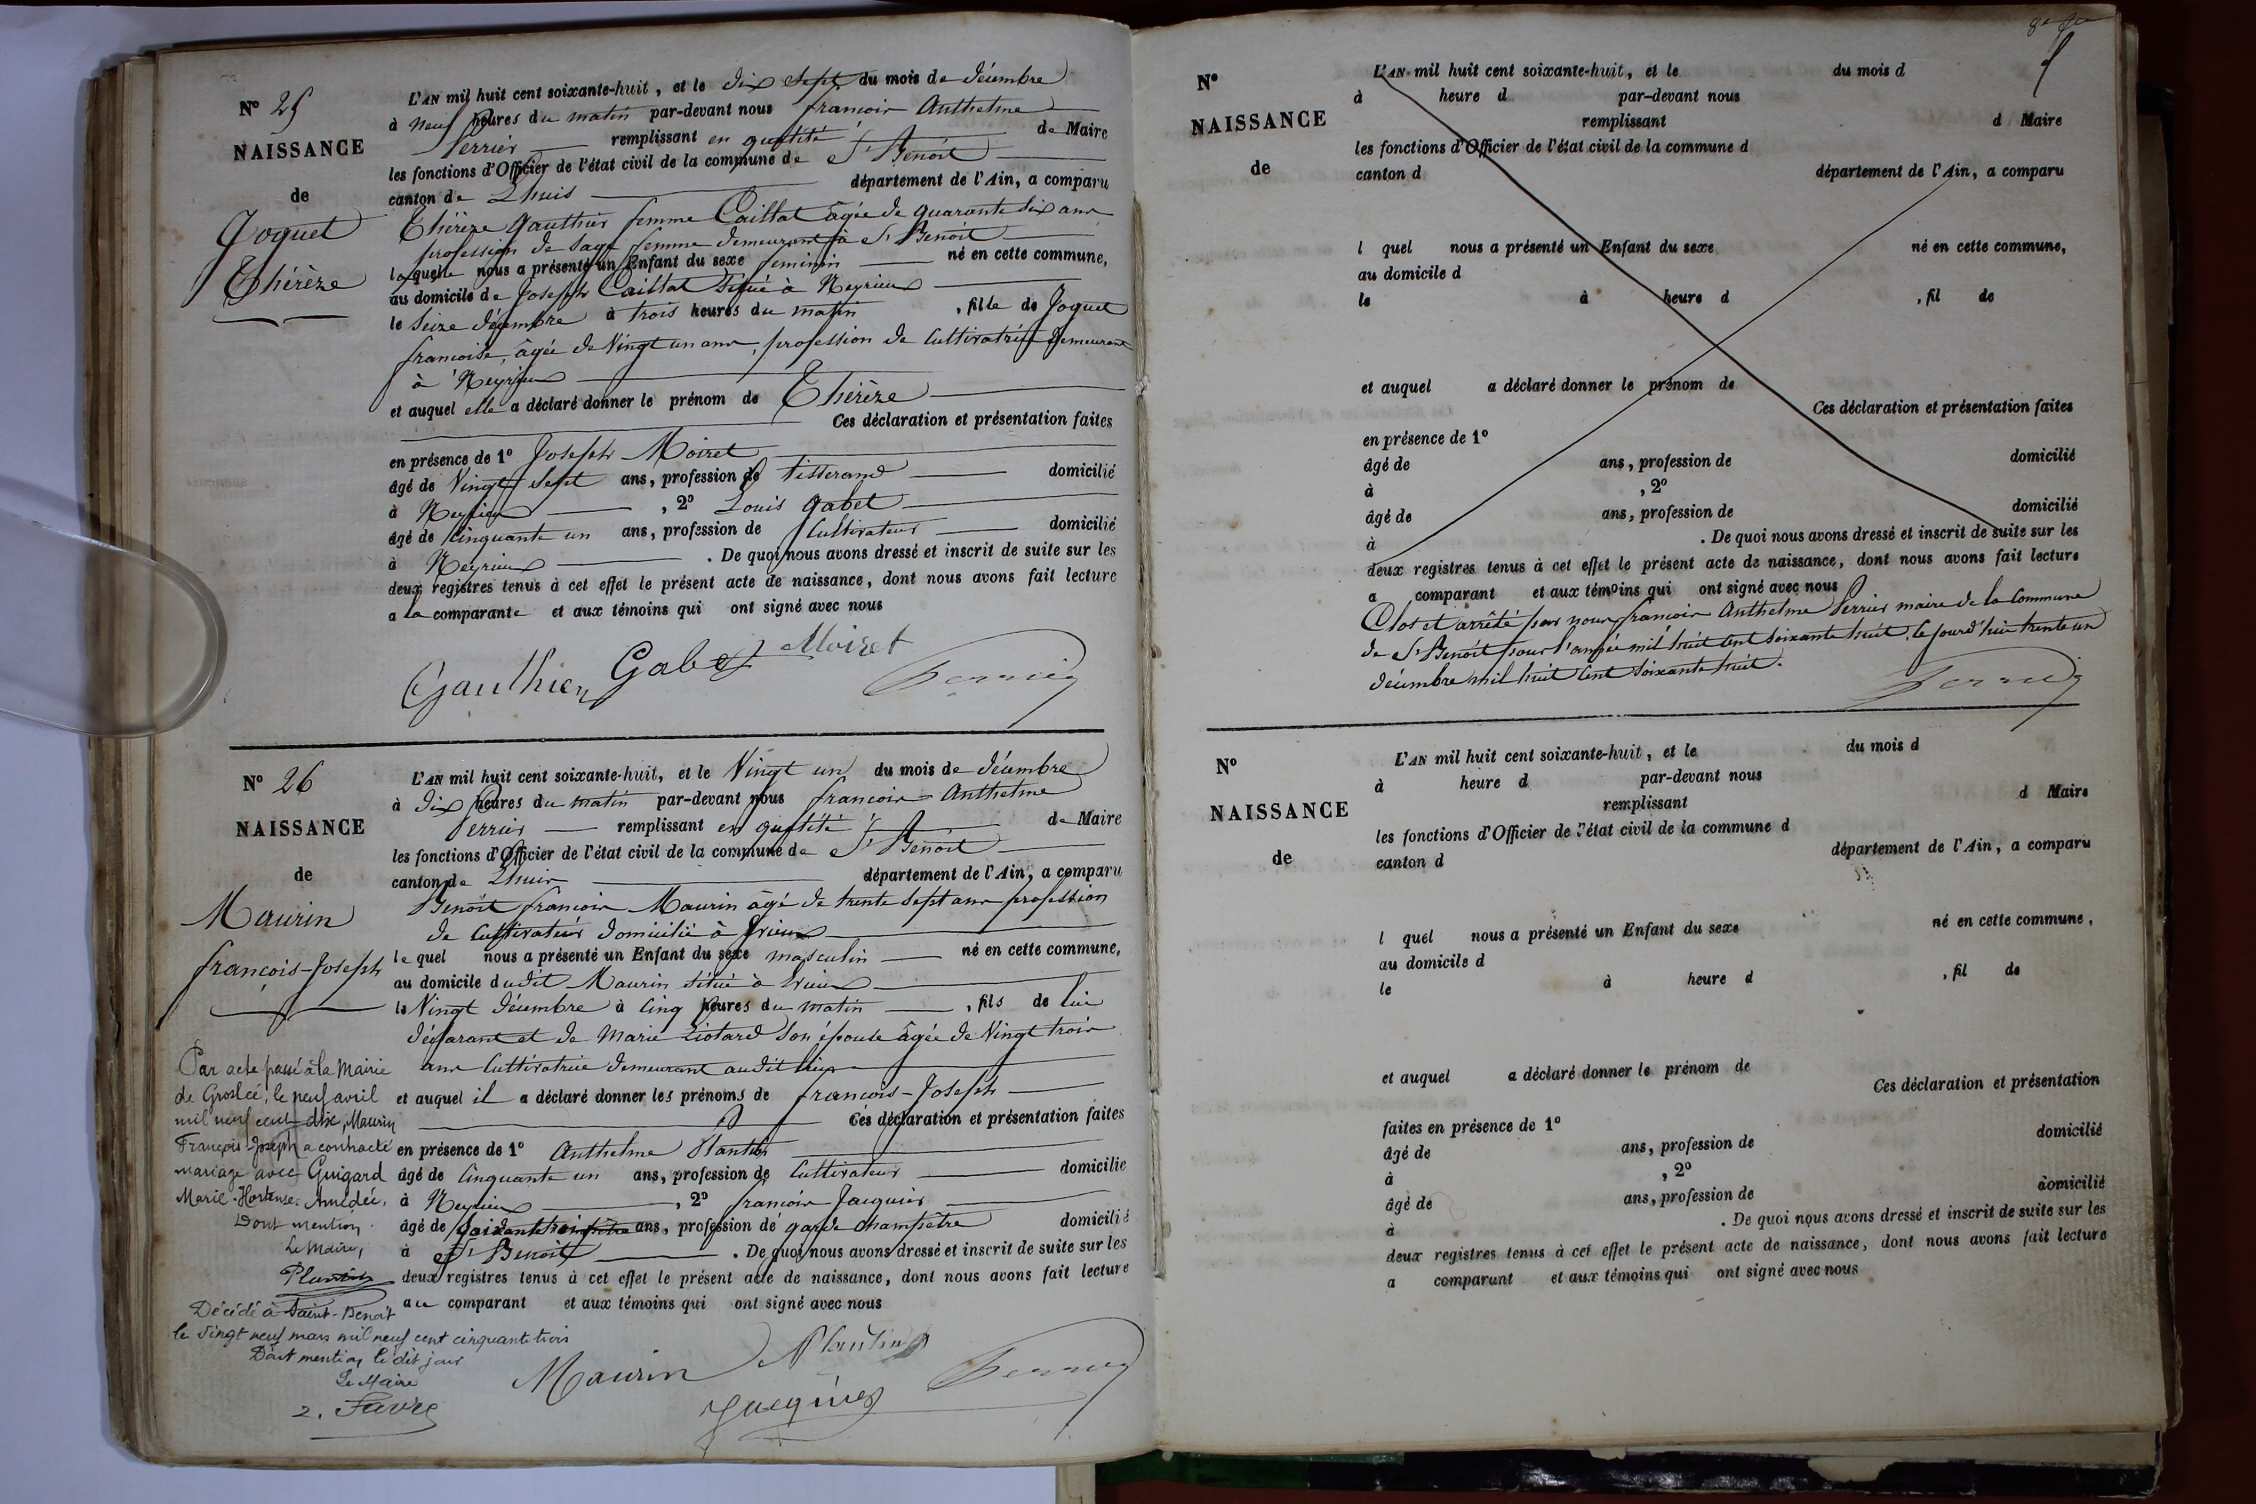 N° 25
NAISSANCE
de
Joquet
Thérèze
L'AN mil huit cent soixante-huit, et le dix sept du mois de décembre
à neuf heures du matin par-devant nous francois Anthelme
Perrier remplissant en qualité de Maire
les fonctions d'Officier de l'état civil de la commune de St Benoît
canton de Lhuis département de l'Ain, a comparu
Thérèze Gauthier femme Caillat âgée de quarante six ans
profession de sage femme demeurant à St Benoît
laquelle nous a présenté un Enfant du sexe feminin né en cette commune,
au domicile de Joseph Caillat situé à Neyrieu
le seize décembre à trois heures du matin, fille de Joquet
francoise, âgée de Vingt un ans, profession de Cultivatrice demeurant
à Neyrieu
et auquel elle a déclaré donner le prénom de Thérèze
Ces déclaration et présentation faites
en présence de 1° Joseph Moiret
âgé de Vingt sept ans, profession de tisserand domicilié
à Neyrieu, 2° Louis Gabet
âgé de cinquante un ans, profession de Cultivateur domicilié
à Neyrieu. De quoi nous avons dressé et inscrit de suite sur les
deux registres tenus à cet effet le présent acte de naissance, dont nous avons fait lecture
a la comparante et aux témoins qui ont signé avec nous
Gauthier Gabet Moiret Perrier
N° 26
NAISSANCE
de
Maurin
françois-Joseph
L'AN mil huit cent soixante-huit, et le Vingt un du mois de décembre
à dix heures du matin par-devant nous francois Anthelme
Perrier remplissant en qualité de Maire
les fonctions d'Officier de l'état civil de la commune de St Benoît
canton de Lhuis département de l'Ain, a comparu
Benoît francois Maurin âgé de trente sept ans profession
de Cultivateur domicilié à
le quel nous a présenté un Enfant du sexe masculin né en cette commune,
au domicile dudit Maurin situé à
le Vingt décembre à cinq heures du matin, fils de lui
déclarant et de Marie Liotard son épouse âgée de Vingt trois
ans Cultivatrice demeurant audit lieu
et auquel il a déclaré donner les prénoms de francois-Joseph
Ces déclaration et présentation faites
en présence de 1° Anthelme Plantin
âgé de cinquante un ans, profession de Cultivateur domicilié
à Neyrieu, 2° francois Jacquier
âgé de ans, profession de garde champêtre domicilié
à St Benoît. De quoi nous avons dressé et inscrit de suite sur les
deux registres tenus à cet effet le présent acte de naissance, dont nous avons fait lecture
au comparant et aux témoins qui ont signé avec nous
Maurin Plantin Jacquier Perrier
Par acte passé à la Mairie
de Groslée, le neuf avril
mil neuf cent dix, Maurin
François-Joseph a contracté
mariage avec Guigard
Marie-Hortense-Amédée.
Dont mention.
Le Maire,
Plantin
Décédé à Saint-Benoît
le vingt neuf mars mil neuf cent cinquante trois
Dont mention le dit jour
Le Maire
Favre
N°
NAISSANCE
de
L'AN mil huit cent soixante-huit, et le du mois d
à heure d par-devant nous
remplissant d Maire
les fonctions d'Officier de l'état civil de la commune d
canton d département de l'Ain, a comparu
l quel nous a présenté un Enfant du sexe né en cette commune,
au domicile d
le à heure d , fil de
et auquel a déclaré donner le prénom de
Ces déclaration et présentation faites
en présence de 1°
âgé de ans, profession de domicilié
à , 2°
âgé de ans, profession de domicilié
à . De quoi nous avons dressé et inscrit de suite sur les
deux registres tenus à cet effet le présent acte de naissance, dont nous avons fait lecture
a comparant et aux témoins qui ont signé avec nous
Clos et arrêté par nous francois Anthelme Perrier maire de la Commune
de St Benoît pour l'année mil huit cent soixante huit, le jourd'hui trente un
décembre mil huit cent soixante huit.
Perrier
N°
NAISSANCE
de
L'AN mil huit cent soixante-huit, et le du mois d
à heure d par-devant nous
remplissant d Maire
les fonctions d'Officier de l'état civil de la commune d
canton d département de l'Ain, a comparu
l quel nous a présenté un Enfant du sexe né en cette commune,
au domicile d
le à heure d , fil de
et auquel a déclaré donner le prénom de
Ces déclaration et présentation
faites en présence de 1°
âgé de ans, profession de domicilié
à , 2°
âgé de ans, profession de domicilié
à . De quoi nous avons dressé et inscrit de suite sur les
deux registres tenus à cet effet le présent acte de naissance, dont nous avons fait lecture
a comparant et aux témoins qui ont signé avec nous